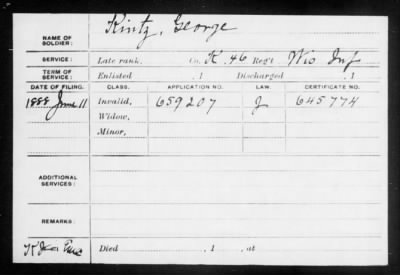 NAME OF SOLDIER: Kintz, George
SERVICE: Late rank, Co. K. 46 Reg't Wis Inf
TERM OF SERVICE: Enlisted , 1 Discharged , 1
DATE OF FILING. CLASS. APPLICATION NO. LAW. CERTIFICATE NO.
1888 June 11 Invalid, 659207 J 645774
Widow,
Minor,
ADDITIONAL SERVICES:
REMARKS:
Died , 1 , at